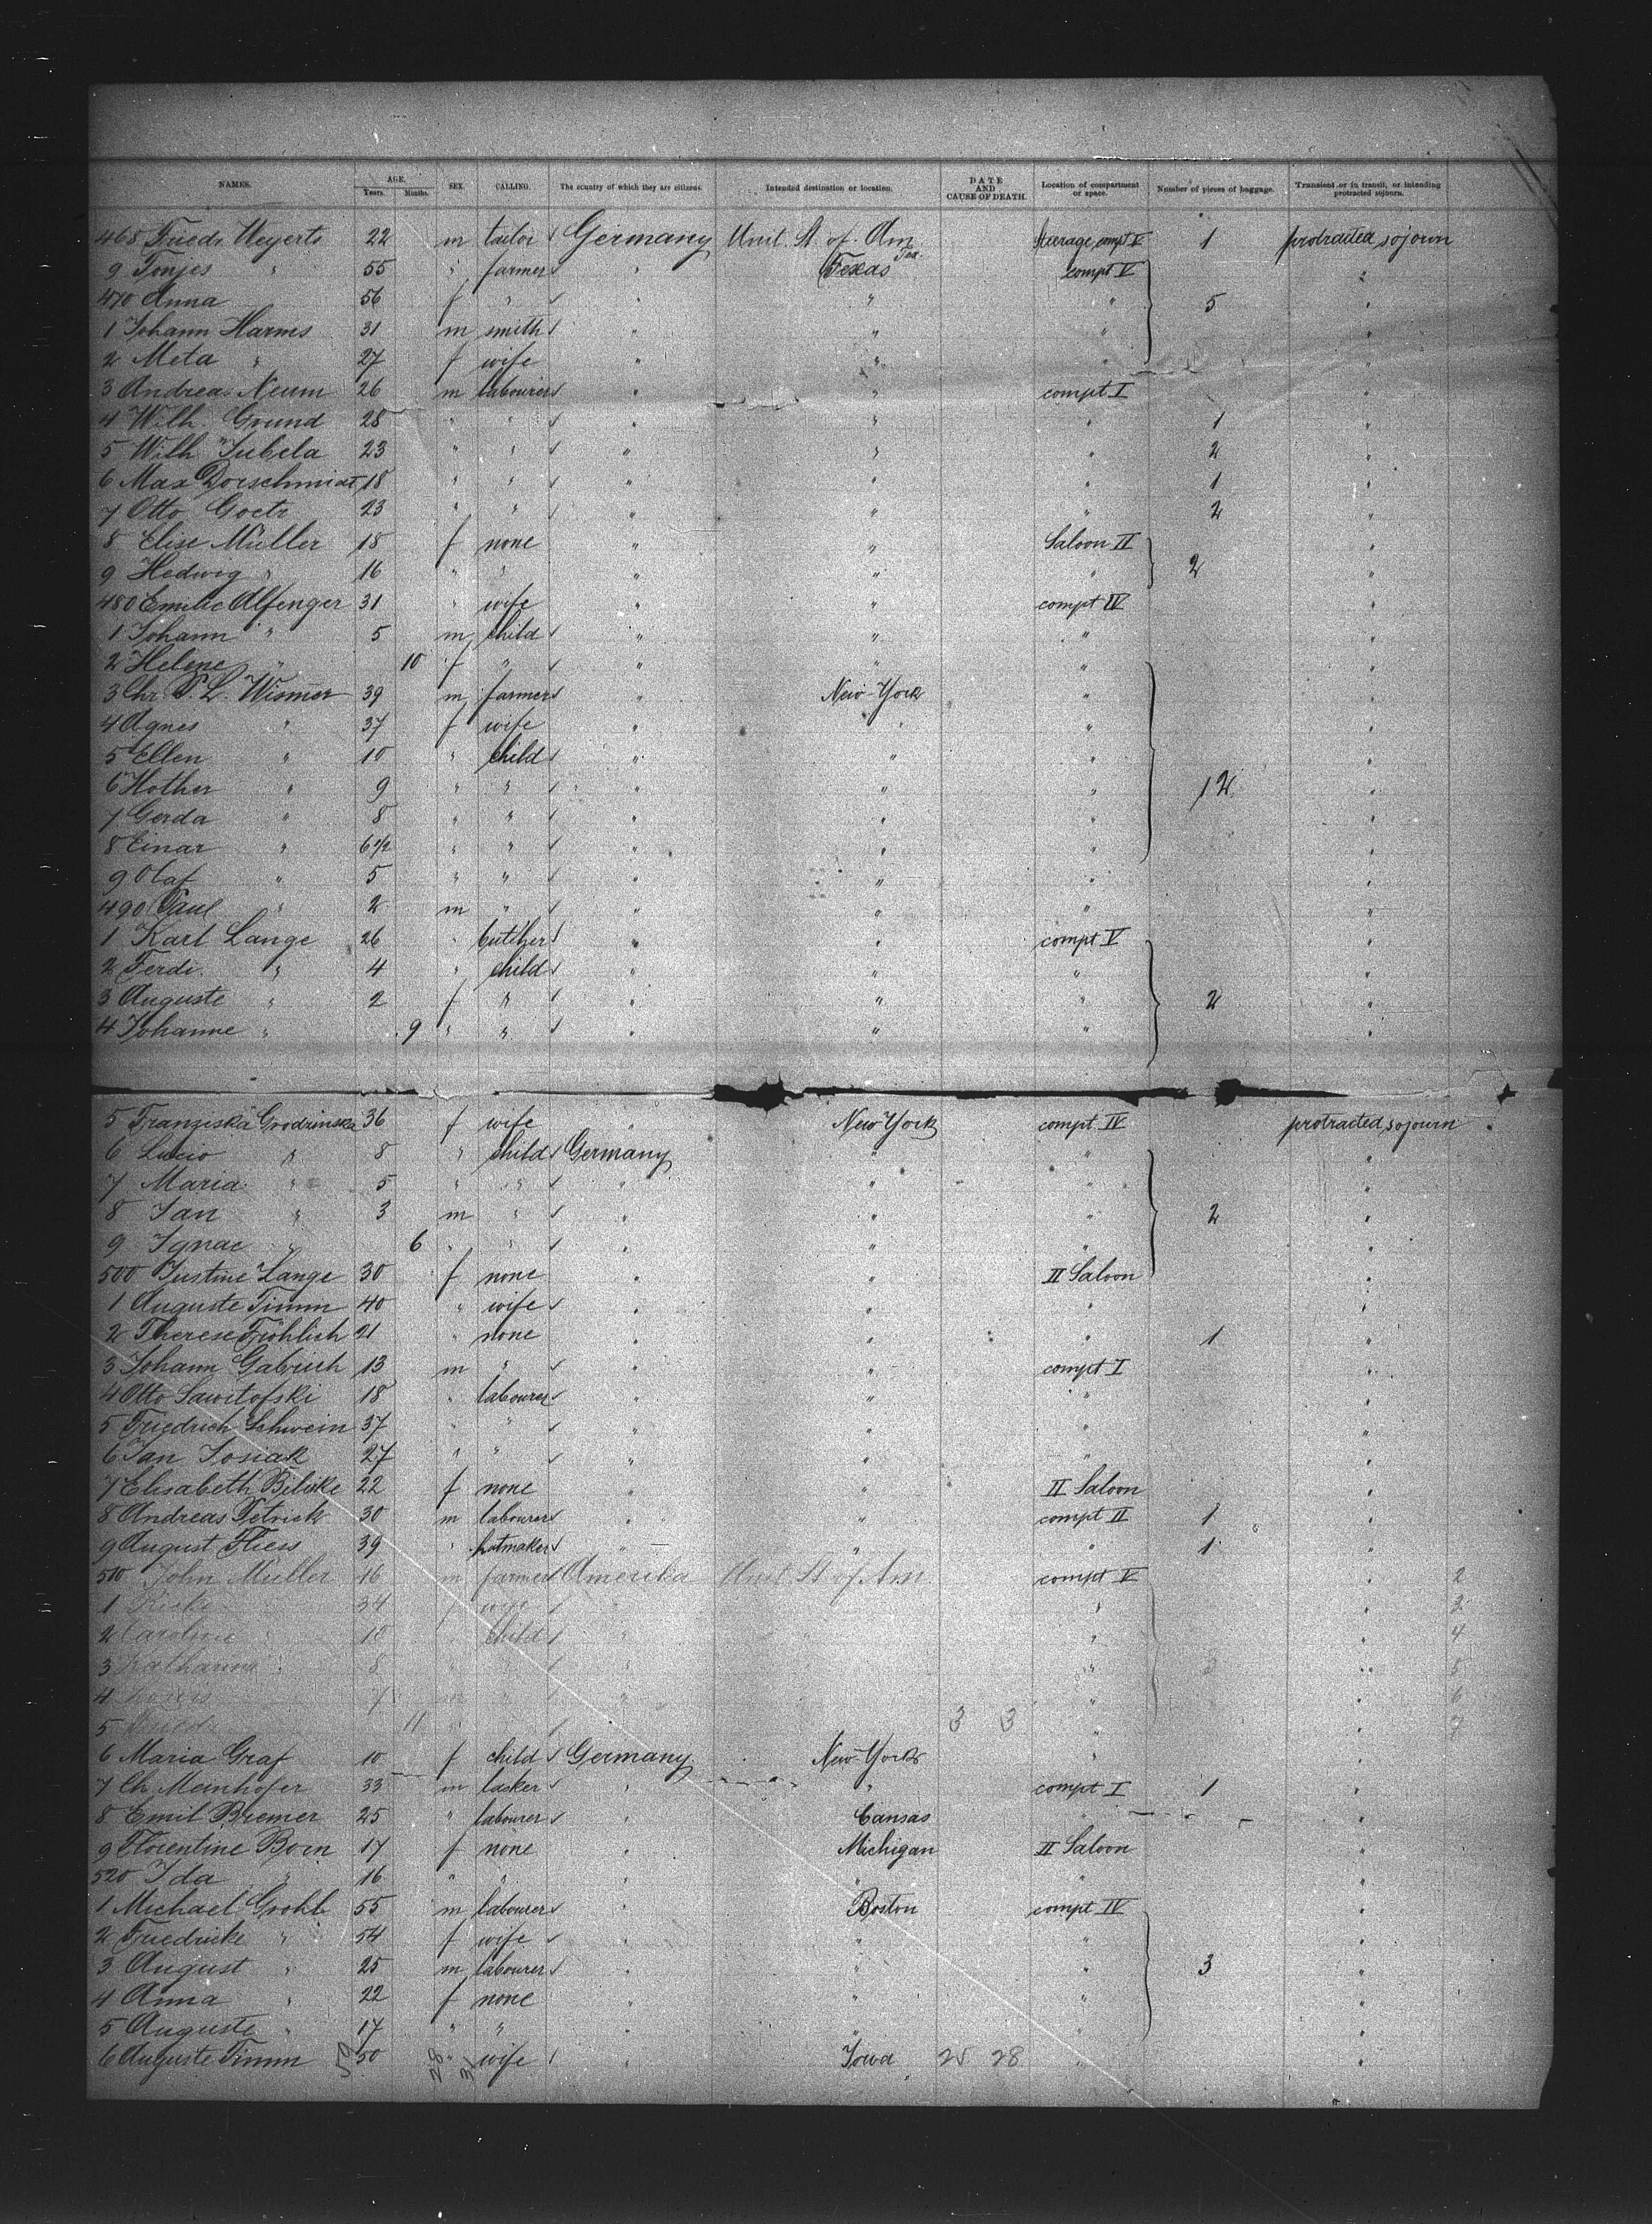 NAMES. AGE. Years. Months. SEX. CALLING. The country of which they are citizens. Intended destination or location. DATE AND CAUSE OF DEATH. Location of compartment or space. Number of pieces of baggage. Transient or in transit, or intending protracted sojourn.
468 Friedr. Meyerts 22 m tailor Germany Unit. St. of Am Steerage, compt V 1 protracted sojourn
9 Tonjes " 55 " farmer " Texas compt V "
470 Anna 56 f " " " " 5
1 Johann Harms 31 m smith " " " "
2 Meta " 27 f wife " " " "
3 Andreas Neum 26 m labourer " " compt I "
4 Wilh. Grund 28 " " " " " 1 "
5 Wilh. Jubela 23 " " " " " 2 "
6 Max Dorschmidt 18 " " " " " 1 "
7 Otto Goetz 23 " " " " " 2 "
8 Elise Müller 18 f none " " Saloon II "
9 Hedwig " 16 " " " " " 2 "
480 Emilie Alfenger 31 " wife " " compt IV "
1 Johann " 5 m child " " " "
2 Helene " 10 f " " " " "
3 Chr. P. L. Wismer 39 m farmer " New-York " "
4 Agnes " 37 f wife " " " "
5 Ellen " 10 " child " " " "
6 Hother " 9 " " " " " 12 "
7 Gerda " 8 " " " " " "
8 Einar " 6 1/2 " " " " " "
9 Olaf " 5 " " " " " "
490 Paul " 2 m " " " " "
1 Karl Lange 26 " butcher " " compt V "
2 Ferdi. " 4 " child " " " "
3 Auguste " 2 f " " " " 2 "
4 Johanne " 9 " " " " " "
5 Franziska Grodzinska 36 f wife " New York compt IV protracted sojourn
6 " 8 " child Germany " " "
7 Maria " 5 " " " " " "
8 Jan " 3 m " " " " 2 "
9 Ignac " 6 " " " " " "
500 Justine Lange 30 f none " " II Saloon "
1 Auguste Timm 40 " wife " " " "
2 Therese Fröhlich 21 " none " " " 1 "
3 Johann Gabrich 13 m " " " compt I "
4 Otto Sawitofski 18 " labourer " " " "
5 Friedrich Schwein 37 " " " " " "
6 Jan Josiak 27 " " " " " "
7 Elisabeth Bilitke 22 f none " " II Saloon "
8 Andreas Petrick 30 m labourer " " compt II 1 "
9 August Fliess 39 " hatmaker " " " 1 "
510 John Müller 46 m farmer Amerika Unit. St. of Am. compt V " 2
1 Ricke 34 f wife " " " 3
2 Caroline " 10 child " " " " 4
3 Katharine " 8 " " " " 3 " 5
4 Louis 7 m " " " " 6
5 Friedr. 11 " 3 3 " " 7
6 Maria Graf 10 f child Germany New-York " "
7 Ch. Meinhofer 33 m " " compt I 1 "
8 Emil Bremer 25 " labourer " Cansas " "
9 Florentine Born 17 f none " Michigan II Saloon "
520 Ida " 16 " " " " " "
1 Michael Grohl 55 m labourer " Boston compt IV "
2 Friedricke " 54 f wife " " " "
3 August " 25 m labourer " " " 3 "
4 Anna " 22 f none " " " "
5 Auguste " 17 " " " " " "
6 Auguste Timm 50 " wife " Iowa 25 28 " "